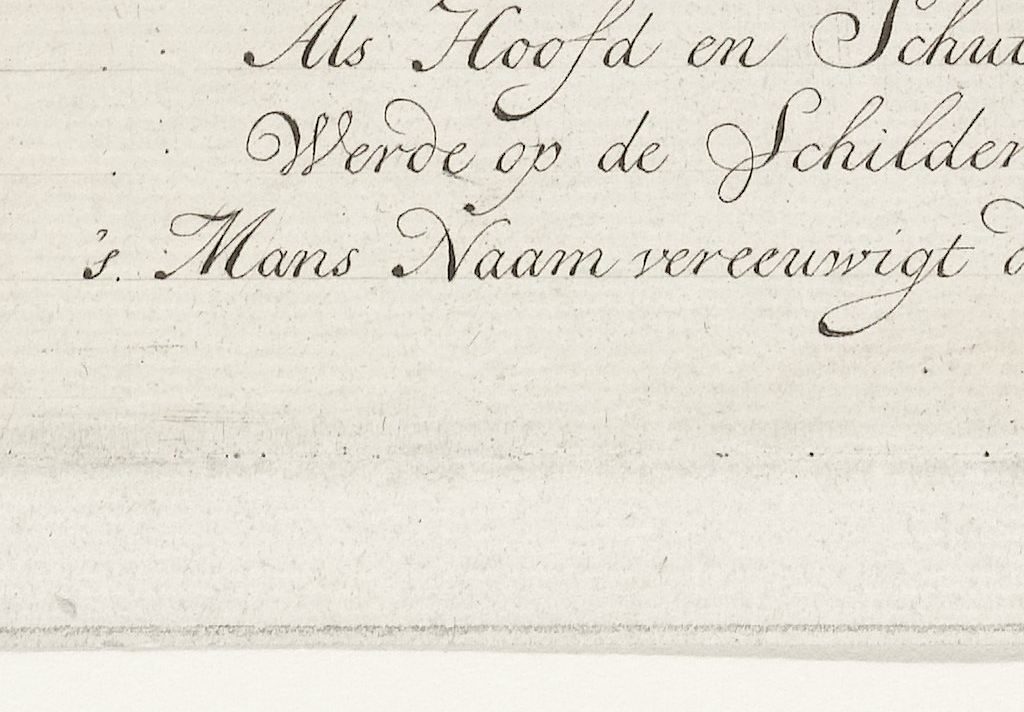 Als Hoofd en Schut
Werde op de Schilder
's. Mans Naam vereeuwigt